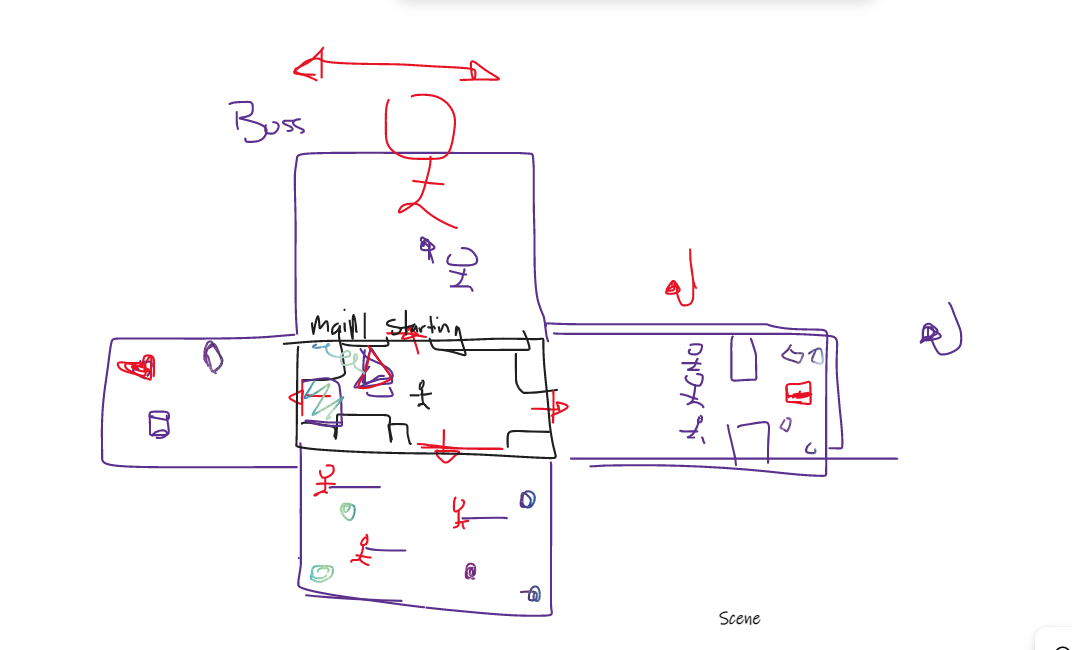 Boss
Main Starting
Scene